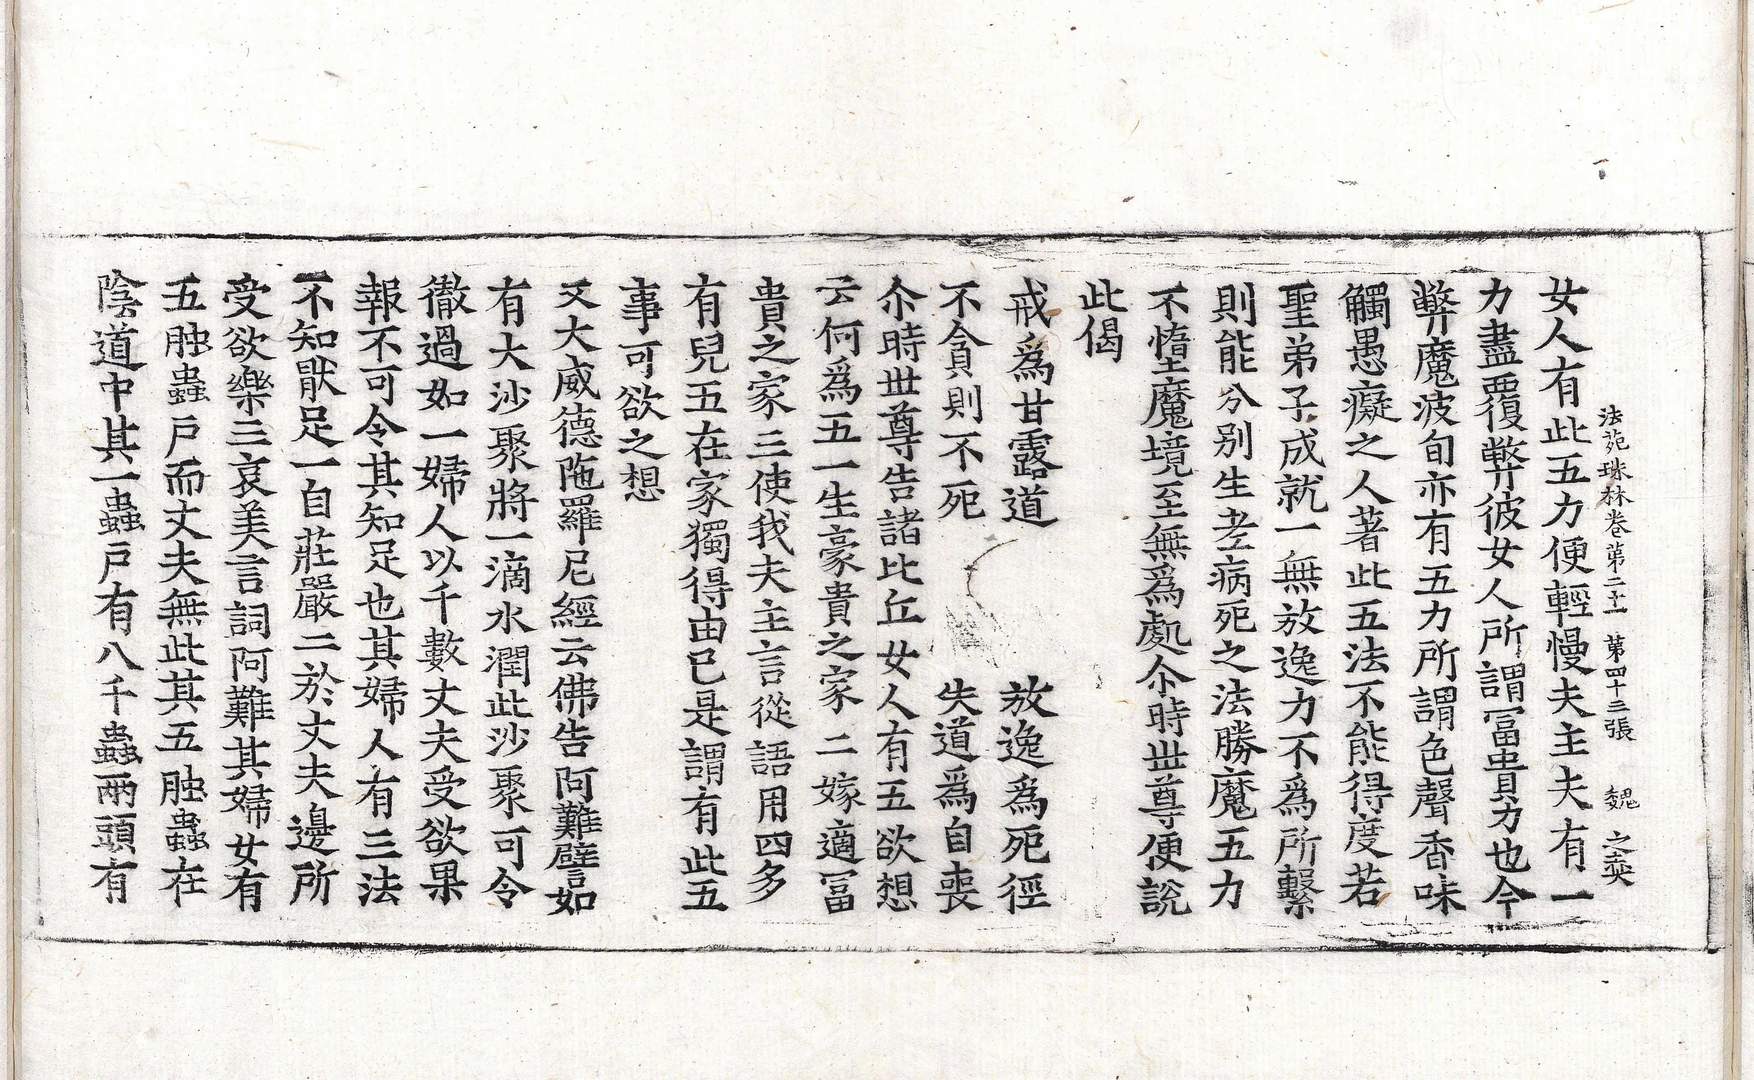 法苑珠林卷第二十一 第四十三張 魏 之奭
女人有此五力便輕慢夫主夫有一
力盡覆弊彼女人所謂冨貴力也今
弊魔波旬亦有五力所謂色聲香味
觸愚癡之人著此五法不能得度若
聖弟子成就一無放逸力不爲所繫
則能分別生老病死之法勝魔五力
不憜魔境至無爲處尒時世尊便說
此偈
戒爲甘露道 放逸爲死徑
不貪則不死 失道爲自喪
尒時世尊告諸比丘女人有五欲想
云何爲五一生豪貴之家二嫁適冨
貴之家三使我夫主言從語用四多
有兒五在家獨得由已是謂有此五
事可欲之想
又大威德陁羅尼經云佛告阿難譬如
有大沙聚將一滴水潤此沙聚可令
徹過如一婦人以千數丈夫受欲果
報不可令其知足也其婦人有三法
不知猒足一自莊嚴二於丈夫邊所
受欲樂三哀美言詞阿難其婦女有
五䖝蟲戶而丈夫無此其五䖝蟲在
陰道中其一蟲戶有八千蟲兩頭有